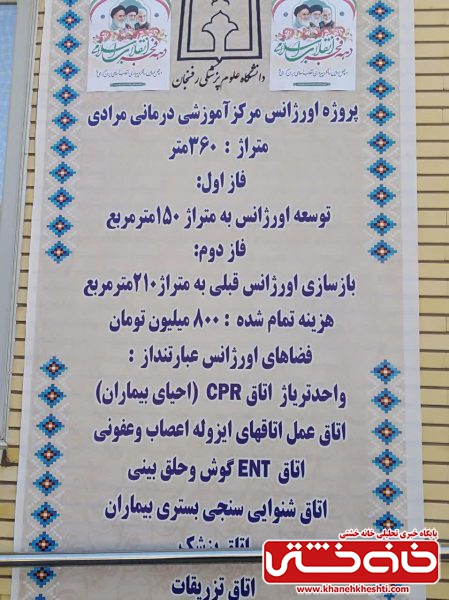 دهه فجر
انقلاب اسلامی
دهه فجر
انقلاب اسلامی
دانشگاه علوم پزشکی رفسنجان
پروژه اورژانس مرکز آموزشی درمانی مرادی
متراژ : ۳۶۰متر
فاز اول:
توسعه اورژانس به متراژ ۱۵۰مترمربع
فاز دوم:
بازسازی اورژانس قبلی به متراژ۲۱۰مترمربع
هزینه تمام شده : ۸۰۰ میلیون تومان
فضاهای اورژانس عبارتنداز :
واحدتریاژ اتاق CPR (احیای بیماران)
اتاق عمل اتاقهای ایزوله اعصاب وعفونی
اتاق ENT گوش وحلق بینی
اتاق شنوایی سنجی بستری بیماران
اتاق پزشک
اتاق تزریقات
پایگاه خبری تحلیلی خانه خشتی
خانه خشتی
www.khanehkheshti.com